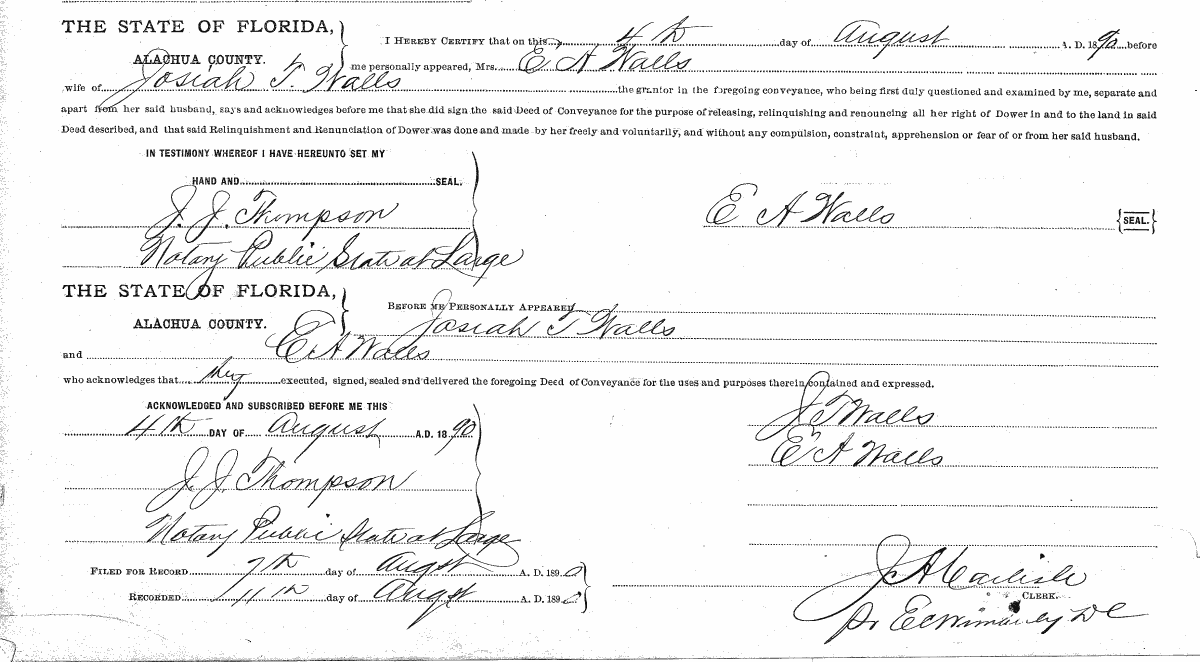 THE STATE OF FLORIDA,
ALACHUA COUNTY.
I HEREBY CERTIFY that on this 4th day of August A. D. 1890 before
me personally appeared, Mrs. E A Walls
wife of Josiah T. Walls the grantor in the foregoing conveyance, who being first duly questioned and examined by me, separate and
apart from her said husband, says and acknowledges before me that she did sign the said Deed of Conveyance for the purpose of releasing, relinquishing and renouncing all her right of Dower in and to the land in said
Deed described, and that said Relinquishment and Renunciation of Dower was done and made by her freely and voluntarily, and without any compulsion, constraint, apprehension or fear of or from her said husband.
IN TESTIMONY WHEREOF I HAVE HEREUNTO SET MY
HAND AND SEAL.
J. J. Thompson
E A Walls {SEAL.}
Notary Public State at Large
THE STATE OF FLORIDA,
ALACHUA COUNTY.
BEFORE ME PERSONALLY APPEARED
Josiah T Walls
and E A Walls
who acknowledges that they executed, signed, sealed and delivered the foregoing Deed of Conveyance for the uses and purposes therein contained and expressed.
ACKNOWLEDGED AND SUBSCRIBED BEFORE ME THIS
4th DAY OF August A.D. 1890
J T Walls
E A Walls
J. J. Thompson
Notary Public State at Large
FILED FOR RECORD 7th day of Augst A. D. 1890
RECORDED 11th day of Augst A. D. 1890
J A Carlisle
CLERK.
Pr E C Wimberly DC